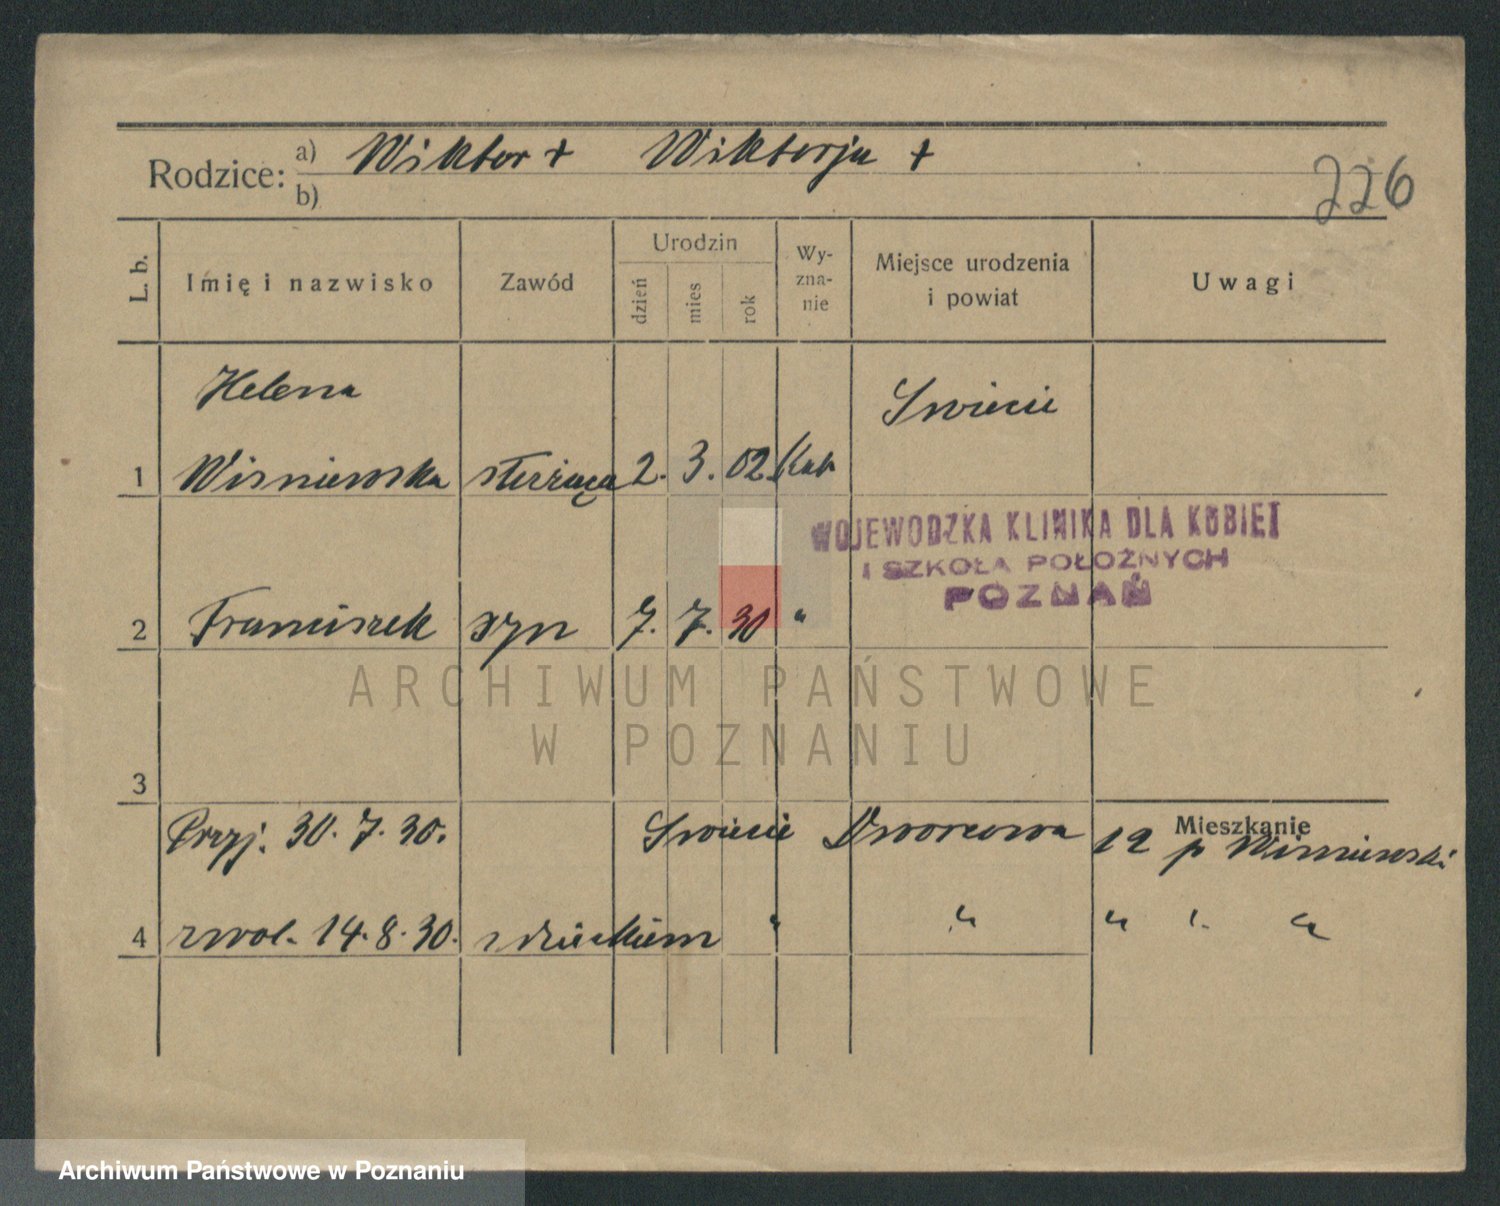 Rodzice: a) Wiktor + Wiktorja +
b)
226
L. b. Imię i nazwisko Zawód Urodzin dzień mies rok Wy-zna-nie Miejsce urodzenia i powiat Uwagi
Helena Swiecie
1 Wisniewska służąca 2. 3. 02. Kat
WOJEWÓDZKA KLINIKA DLA KOBIET
I SZKOŁA POŁOŻNYCH
POZNAŃ
2 Franciszek syn 7. 7. 30 "
ARCHIWUM PAŃSTWOWE
W POZNANIU
3
Mieszkanie
Przyj. 30. 7. 30. Swiecie Dworcowa 12 p Wisniewski
4 zwol. 14. 8. 30. z dzieckiem " " " " "
Archiwum Państwowe w Poznaniu